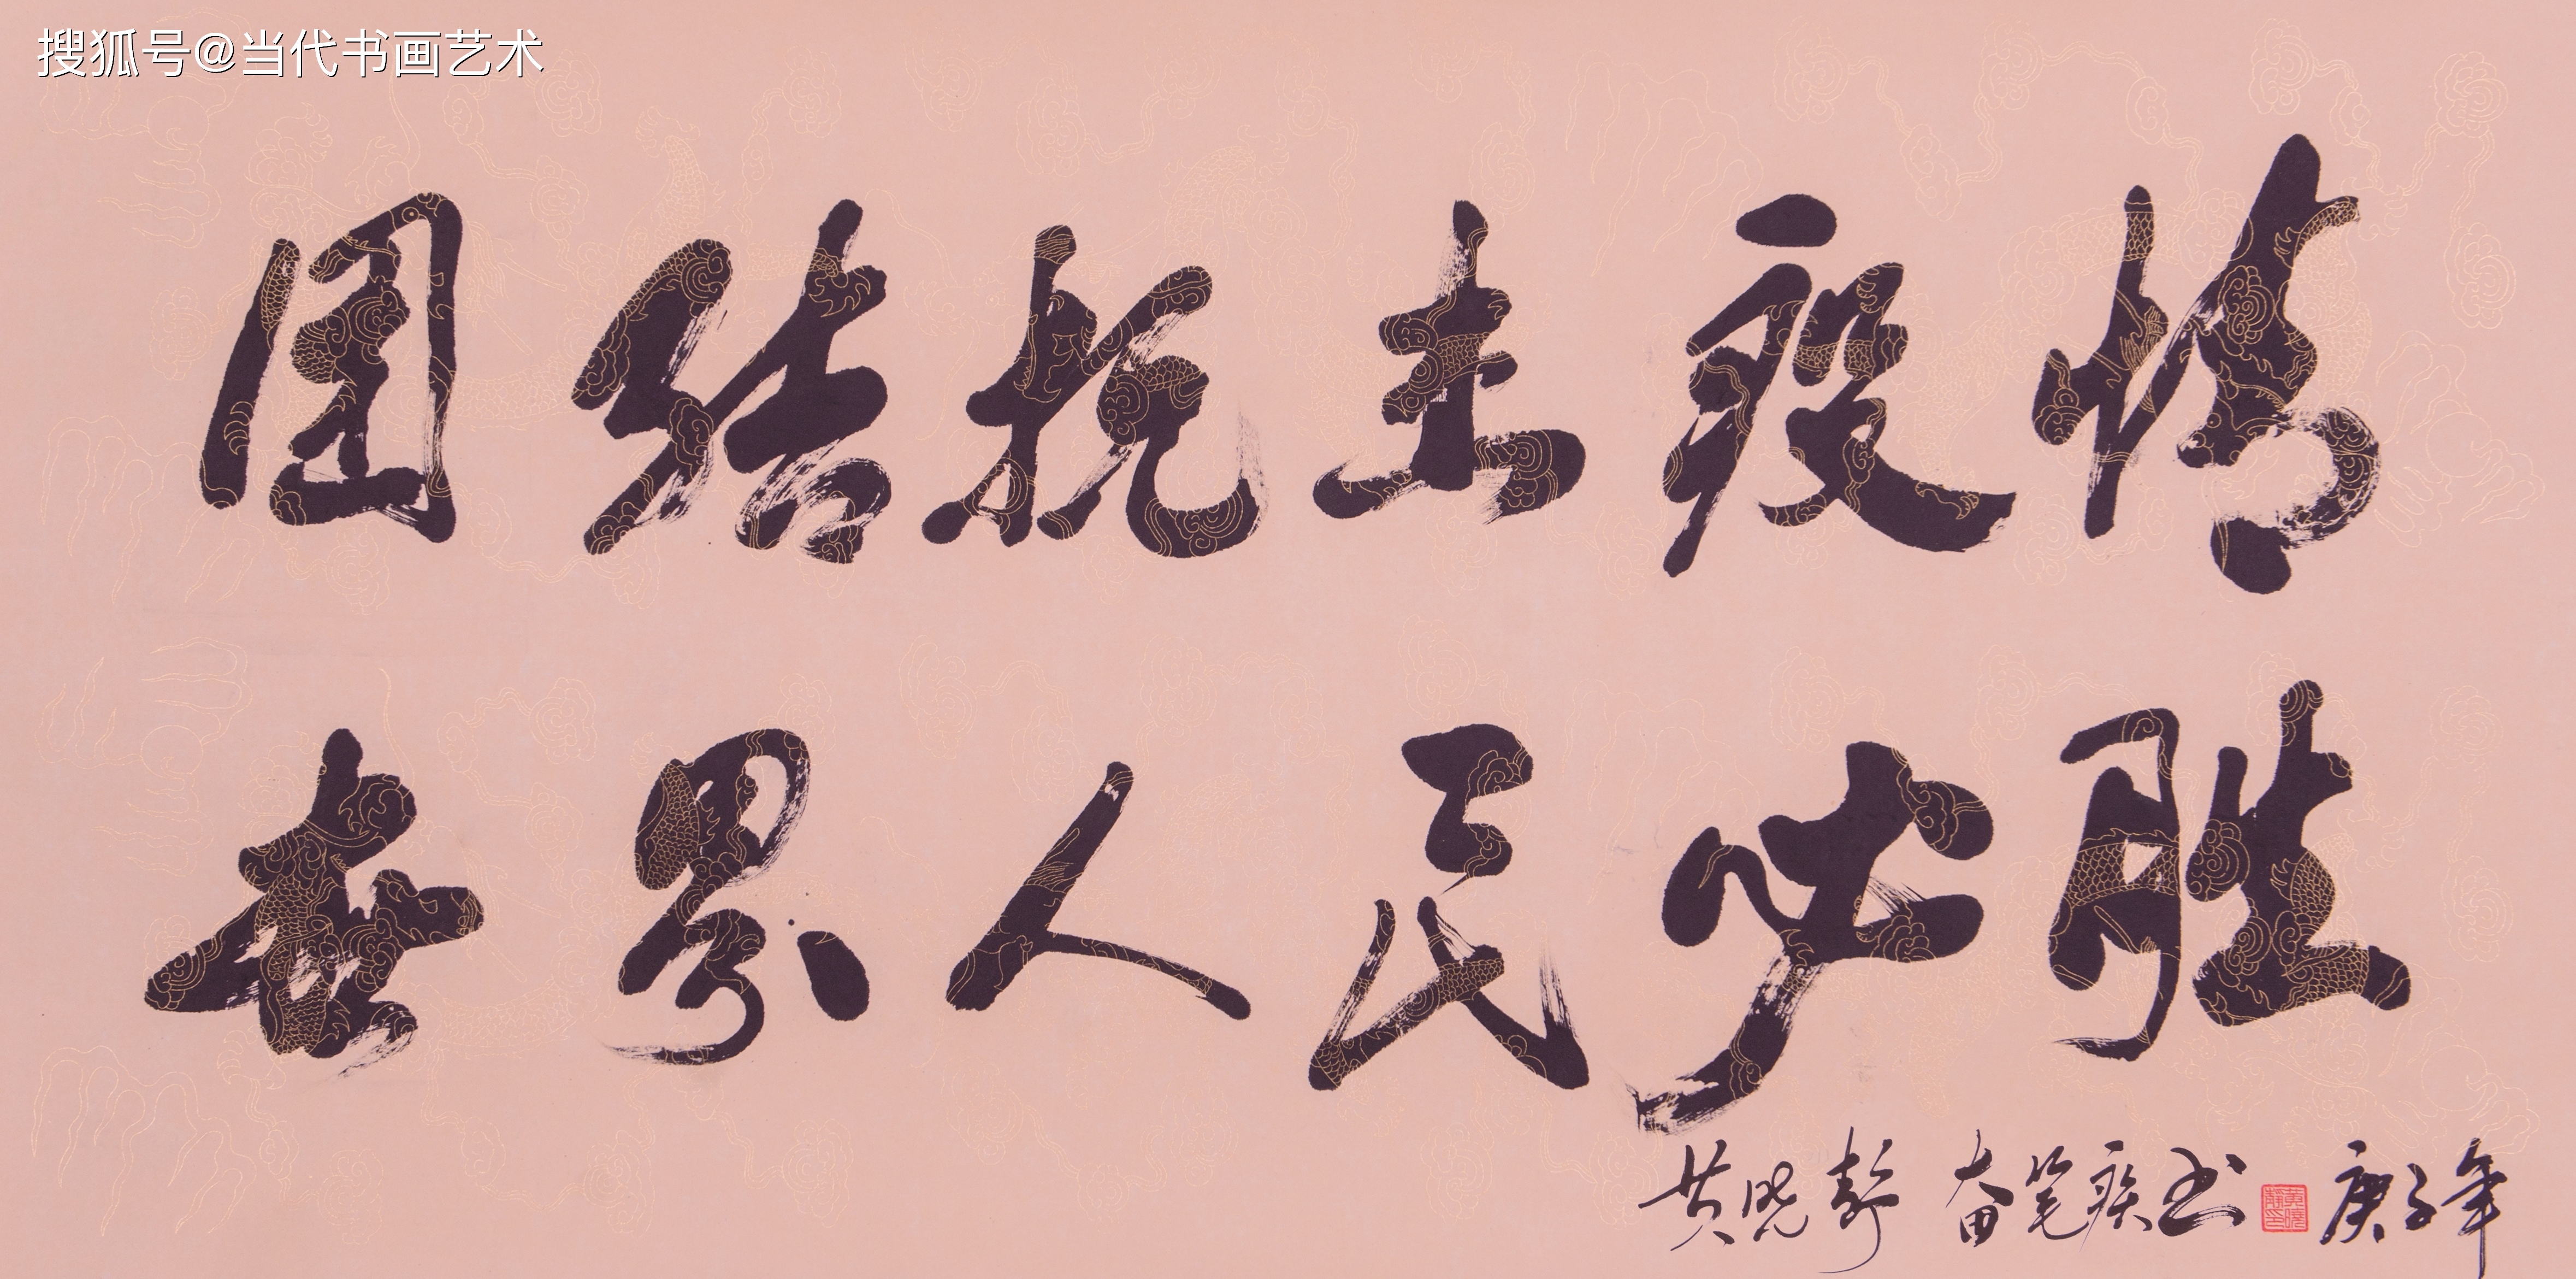 搜狐号@当代书画艺术
团结抗击疫情
世界人民必胜
黄晓彭 奋笔疾书 庚子年